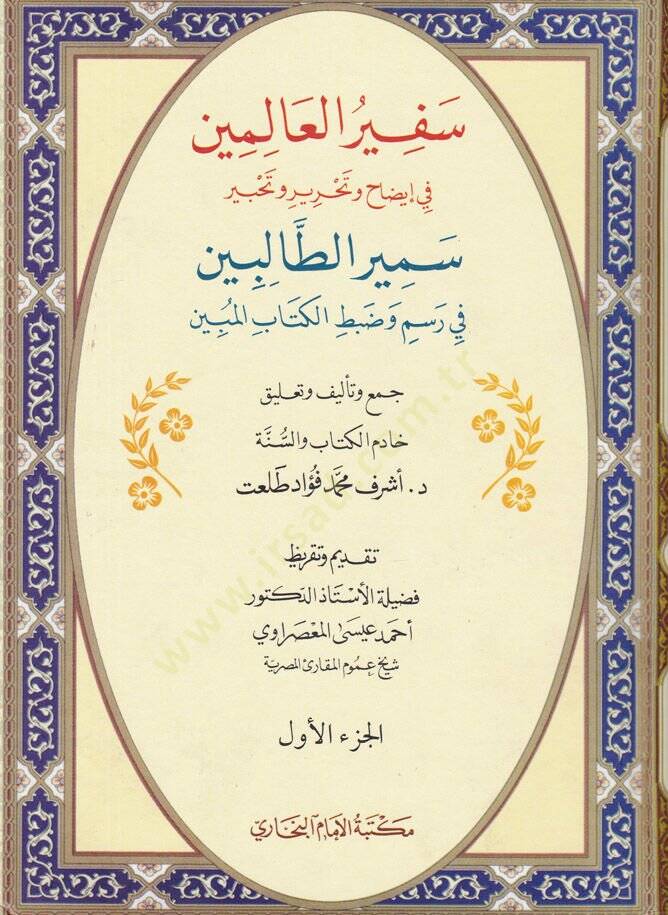 سَفِيرُ العَالِمِين
فِي إيضاح وتَحْرِيرِ وتَحْبير
سَمِير الطَّالِبِين
فِي رَسمِ وَضَبطِ الكتَابِ المُبين
جمع وتأليف وتعليق
خادم الكتاب والسُّنَّة
د. أشرف محمَّد فُؤاد طلعت
تقديم وتقريظ
فضيلة الأستاذ الدكتور
أحمد عيسى المعصراوي
شيخ عموم المقارئ المصرية
الجزء الأول
مكتبة الإمام البخاري
www.irsad.com.tr